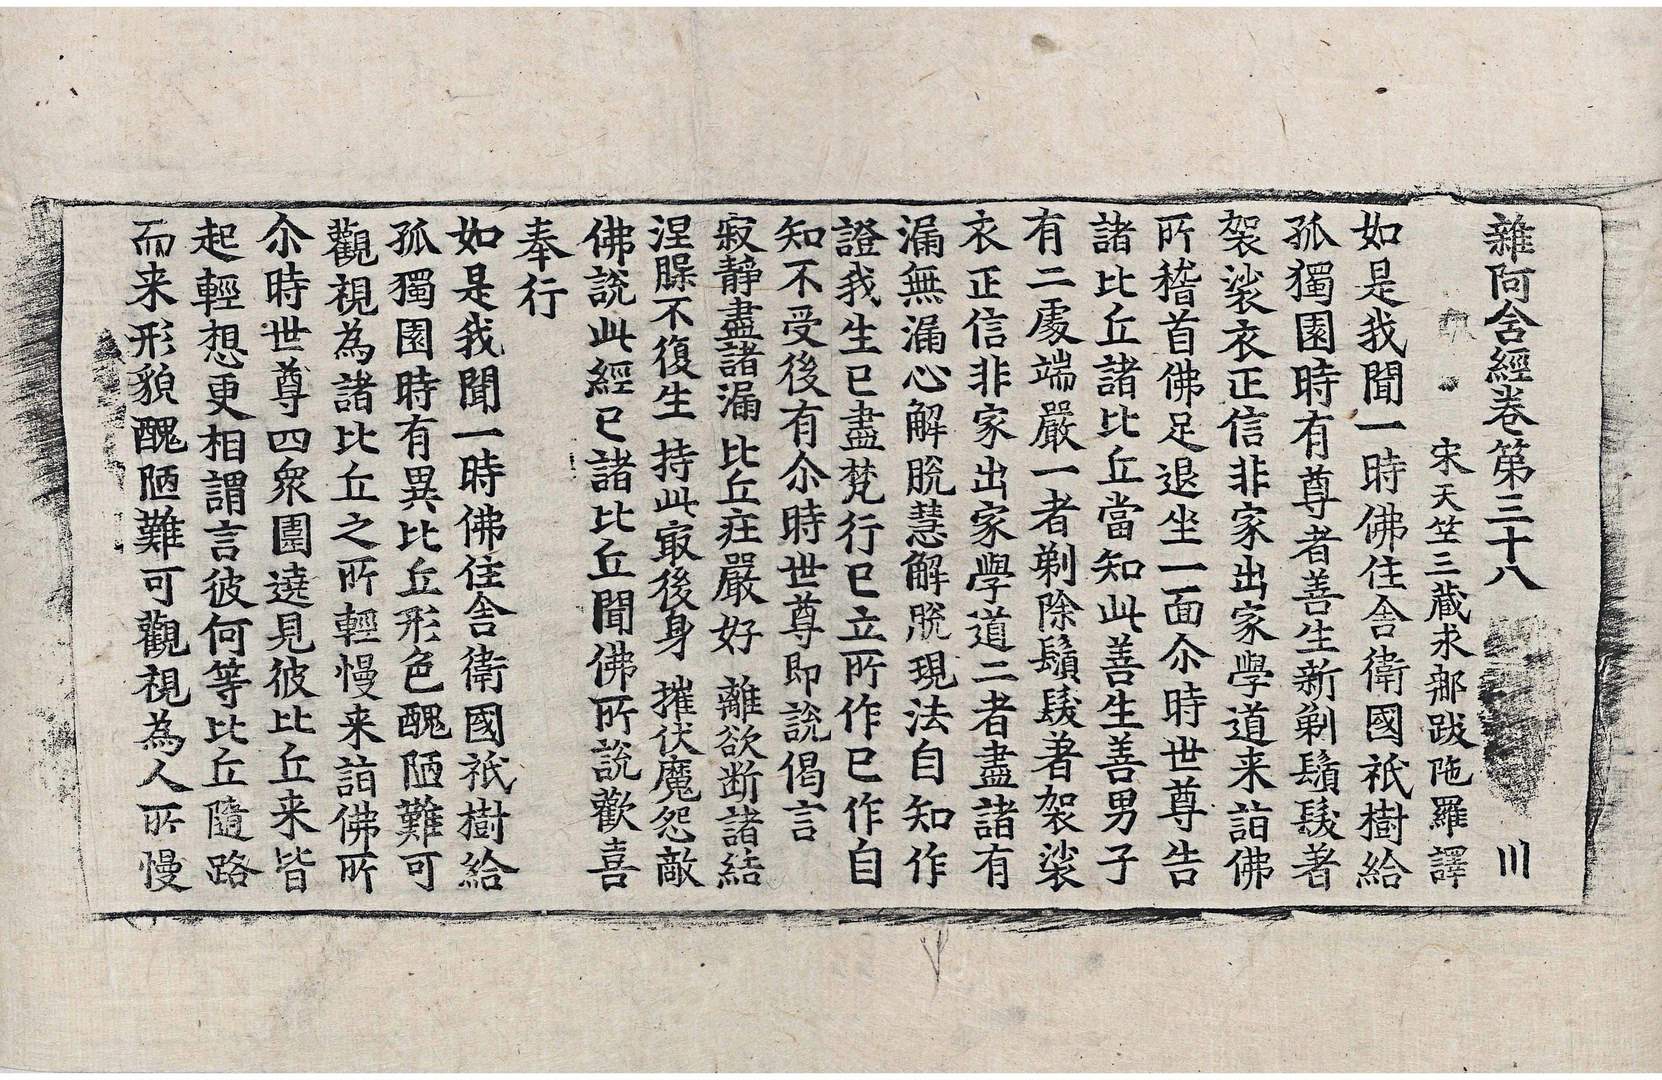 雜阿含經卷第三十八 川
宋天竺三藏求那跋陁羅譯
如是我聞一時佛住舍衛國祇樹給
孤獨園時有尊者善生新剃鬚髮著
袈裟衣正信非家出家學道来詣佛
所稽首佛足退坐一面尒時世尊告
諸比丘諸比丘當知此善生善男子
有二處端嚴一者剃除鬚髮著袈裟
衣正信非家出家學道二者盡諸有
漏無漏心解脫慧解脫現法自知作
證我生已盡梵行已立所作已作自
知不受後有尒時世尊即說偈言
寂靜盡諸漏 比丘庄嚴好 離欲断諸結
涅槃不復生 持此最後身 摧伏魔怨敵
佛說此經已諸比丘聞佛所說歡喜
奉行
如是我聞一時佛住舍衛國祇樹給
孤獨園時有異比丘形色醜陋難可
觀視為諸比丘之所輕慢来詣佛所
尒時世尊四衆圍遶見彼比丘来皆
起輕想更相謂言彼何等比丘隨路
而来形貌醜陋難可觀視為人所慢